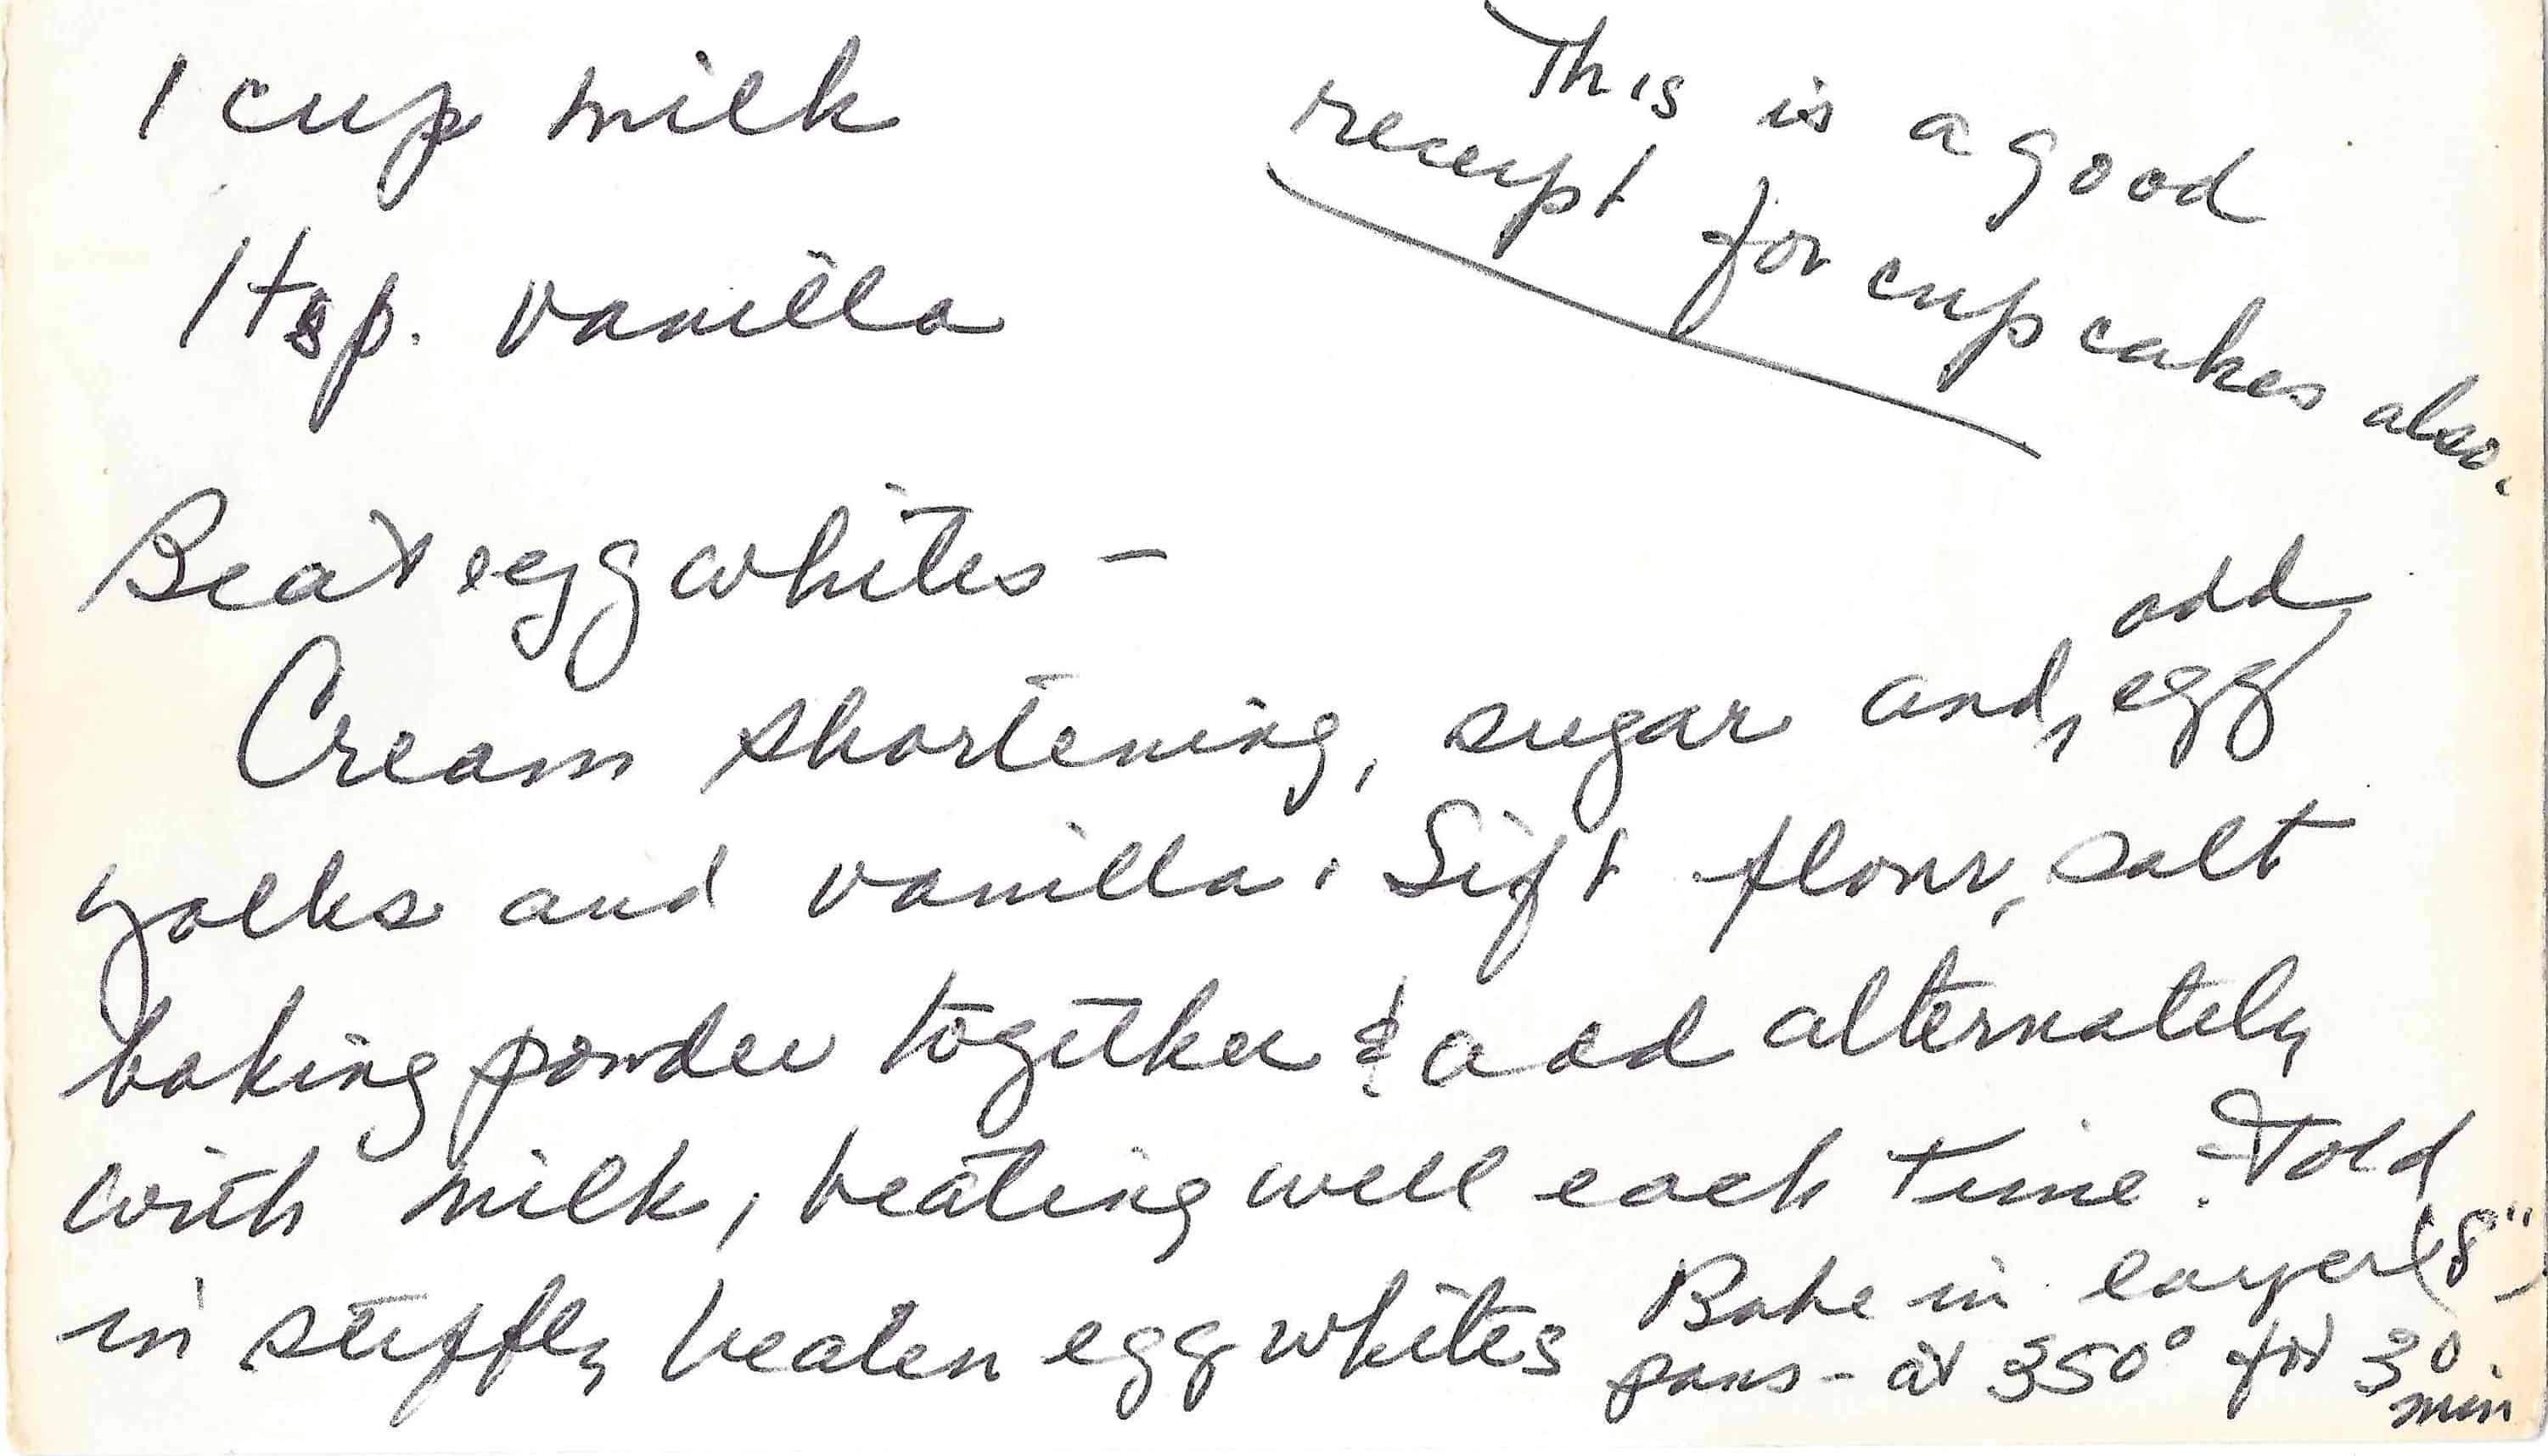 1 cup milk
1 tsp. vanilla
This is a good
receipt for cup cakes also.
Beat egg whites -
Cream shortening, sugar and, add egg
yolks and vanilla. Sift flour, salt
baking powder together & add alternately
with milk, beating well each time. Fold
in stiffly beaten egg whites Bake in layer (8")
pans - at 350° for 30
min